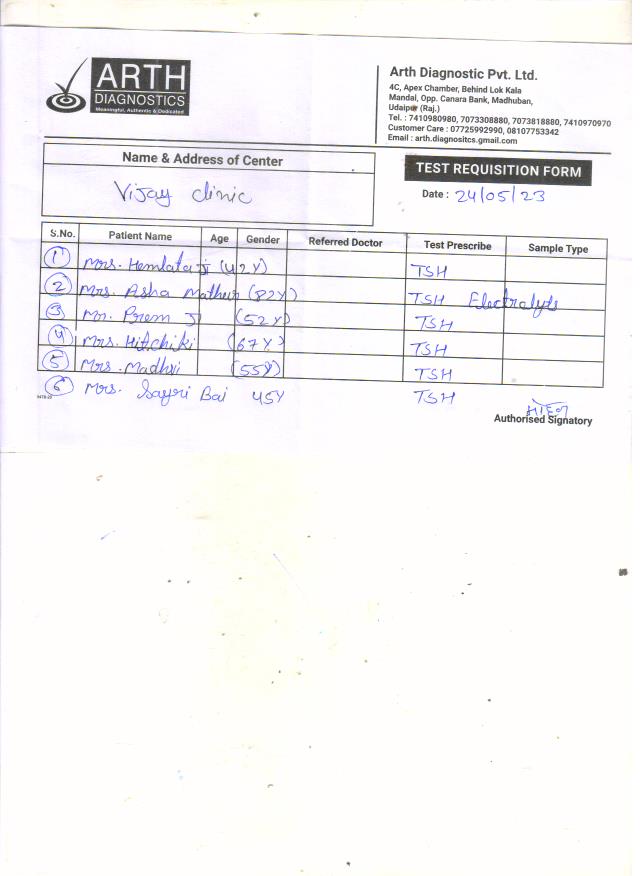 ARTH
DIAGNOSTICS
Meaningful, Authentic & Dedicated
Arth Diagnostic Pvt. Ltd.
4C, Apex Chamber, Behind Lok Kala
Mandal, Opp. Canara Bank, Madhuban,
Udaipur (Raj.)
Tel. : 7410980980, 7073308880, 7073818880, 7410970970
Customer Care : 07725992990, 08107753342
Email : arth.diagnositcs.gmail.com
Name & Address of Center
Vijay clinic
TEST REQUISITION FORM
Date : 24/05/23
S.No. Patient Name Age Gender Referred Doctor Test Prescribe Sample Type
1 Mrs. Hemlata Ji (42Y) TSH
2 Mrs. Asha Mathur (82Y) TSH Electralyte
3 Mr. Prem Ji (52Y) TSH
4 Mrs. Hitchiki (67Y) TSH
5 Mrs. Madhvi (55Y) TSH
6 Mrs. Sayri Bai 45Y TSH
Authorised Signatory